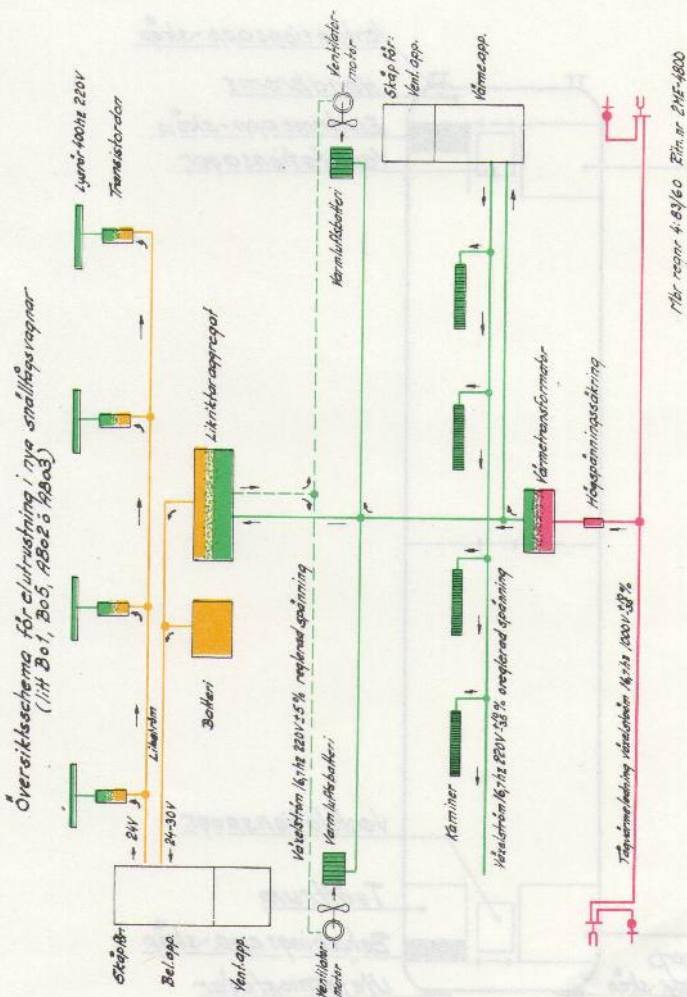 Översiktsschema för elutrustning i nya snälltågsvagnar
(litt Bo1, Bo5, ABo2 o ABo3)
Lysrör 400hz 220V
Transistordon
Skåp för:
Bel.app.
Vent.app.
24V
24-30V
Likström
Batteri
Likriktaraggregat
Växelström 16,7hz 220V ±5% reglerad spänning
Ventilator-
motor
Varmluftsbatteri
Ventilator-
motor
Varmluftsbatteri
Skåp för:
Vent.app.
Värme.app.
Kaminer
Växelström 16,7hz 220V oreglerad spänning
Värmetransformator
Högspänningssäkring
Tågvärmeledning växelström 16,7hz 1000V
Mbr regnr 4:83/60 Ritn.nr 2ME-4800